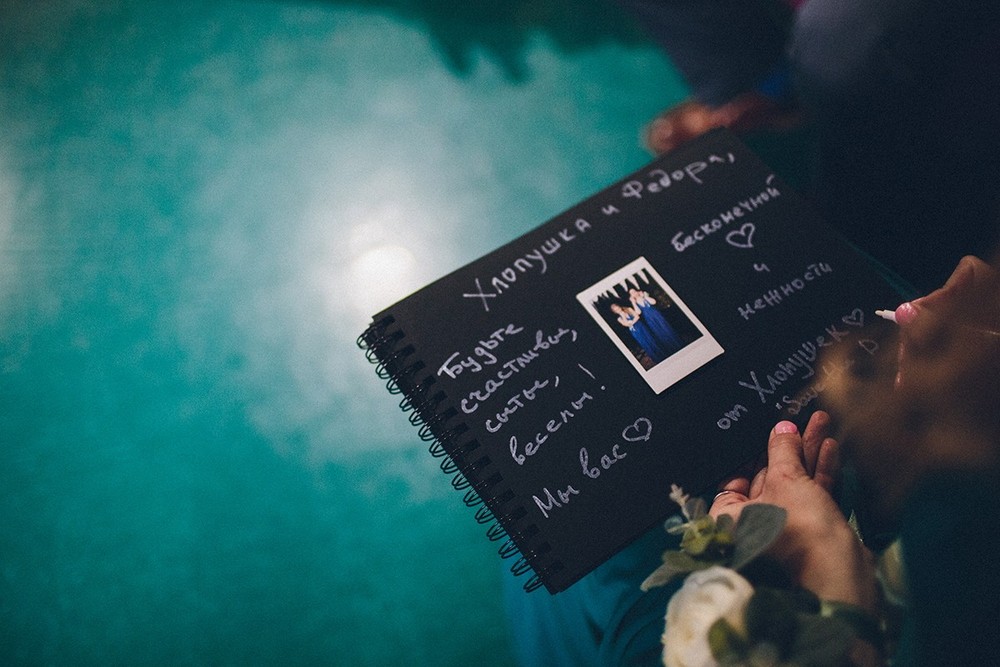 Хлопушка и Федора,
Будьте
счастливы,
сыты,
веселы!
Мы вас ♡
бесконечной
♡
и
нежности
от Хлопушек ♡